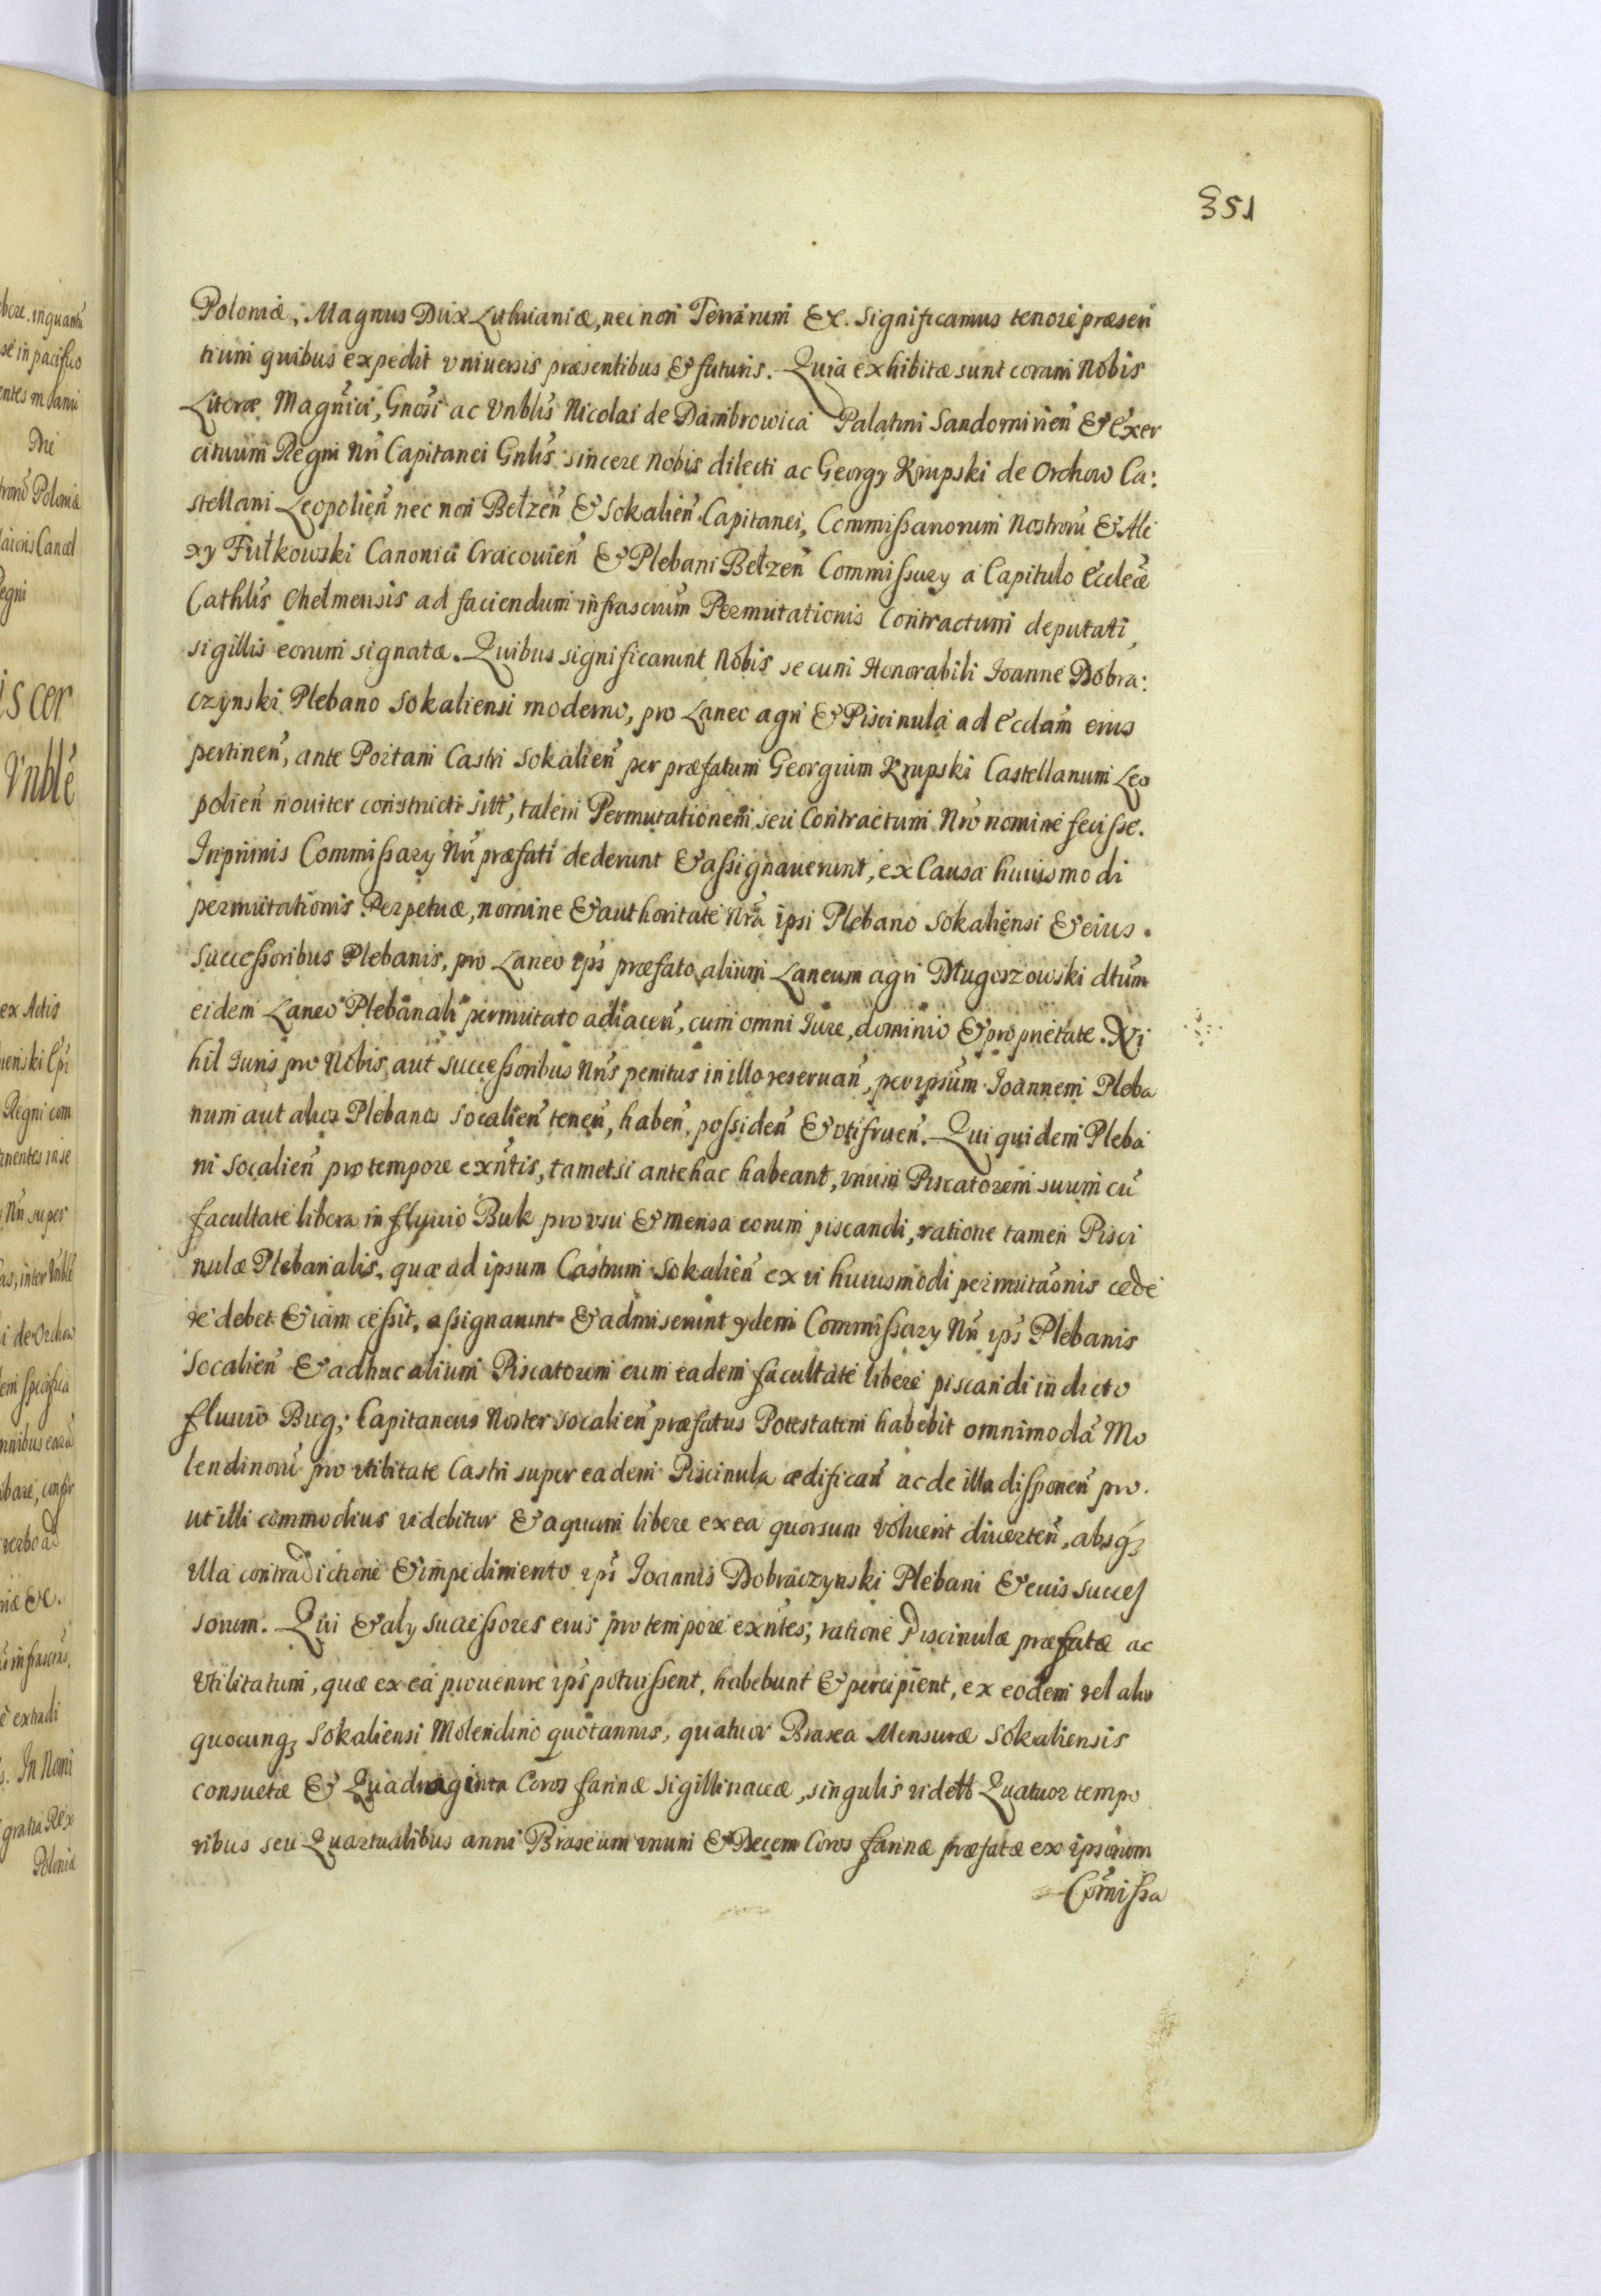 351
Poloniæ, Magnus Dux Lithuaniæ, nec non Terrarum &c. Significamus tenore præsen
tium quibus expedit vniuersis præsentibus & futuris. Quia exhibitæ sunt coram Nobis
Literæ Magn̄ici, Gnōsi ac Vnblīs Nicolai de Dambrowica Palatini Sandomirień & Exer
cituum Regni Nrī Capitanei Gnlīs sincere Nobis dilecti ac Georgy Krupski de Orchow Ca:
stellani Leopolień nec non Bełzeń & Sokalień Capitanei, Commissariorum Nostrorū & Ale
xy Futkowski Canonici Cracouień & Plebani Bełzeń Commissary a Capitulo Ecclēæ
Cathlīs Chelmensis ad faciendum infrascrūm Permutationis Contractum deputati,
sigillis eorum signatæ. Quibus significarunt Nobis se cum Honorabili Ioanne Dobra:
czynski Plebano Sokaliensi moderno, pro Laneo agri & Piscinula ad Eccłam eius
pertineń, ante Portam Castri Sokalień per præfatum Georgium Krupski Castellanum Leo
polień nouiter constructi sitt, talem Permutationem seu Contractum Nrō nomine fecisse.
Inprimis Commissary Nrī præfati dederunt & assignauerunt, ex Causa huiusmodi
permutationis Perpetuæ, nomine & authoritate Nrā ipsi Plebano Sokaliensi & eius
Successoribus Plebanis, pro Laneo ips̄ præfato alium Laneum agri Długoszowski dtūm
eidem Laneo Plebanali permutato adiaceń, cum omni Iure, dominio & proprietate. Ni
hil Iuris pro Nobis aut Successoribus Nrīs penitus in illo reseruań, per ipsum Ioannem Pleba
num aut alios Plebanos Socalień teneń, habeń, possideń & vtifrueń. Qui quidem Pleba
ni Socalień pro tempore exn̄tis, tametsi antehac habeant, vnum Piscatorem suum cū
facultate libera in fluuio Buk pro vsu & mensa eorum piscandi, ratione tamen Pisci
nulæ Plebanalis, quæ ad ipsum Castrum Sokalień ex vi huiusmodi permutaōnis cede
re debet & iam cessit, assignarunt & admiserunt ydem Commissary Nrī ips̄ Plebanis
Socalień & adhuc alium Piscatorem cum eadem facultate libere piscandi in dicto
fluuio Bug; Capitaneus Noster Socalień præfatus Potestatem habebit omnimodā Mo
lendinorū pro vtilitate Castri super eadem Piscinula ædificań ac de illa disponeń pro
ut illi commodius videbitur & aquam libere ex ea quorsum voluerit diuerteń, absq3
vlla contradictione & impedimento ips̄ Ioannis Dobraczynski Plebani & euis succes
sorum. Qui & aly successores eius pro tempore exn̄tes; ratione Piscinulæ præfatæ ac
Vtilitatum, quæ ex ea prouenire ips̄ potuissent, habebunt & percipient, ex eodem vel alio
quocunq3 Sokaliensi Molendino quotannis, quatuor Brasea Mensuræ Sokaliensis
consuetæ & Quadraginta Coros farinæ sigillinaceæ, singulis videtł Quatuor tempo
ribus seu Quartualibus anni Braseum vnum & Decem Coros farinæ præfatæ ex ipsorum
Com̄issa